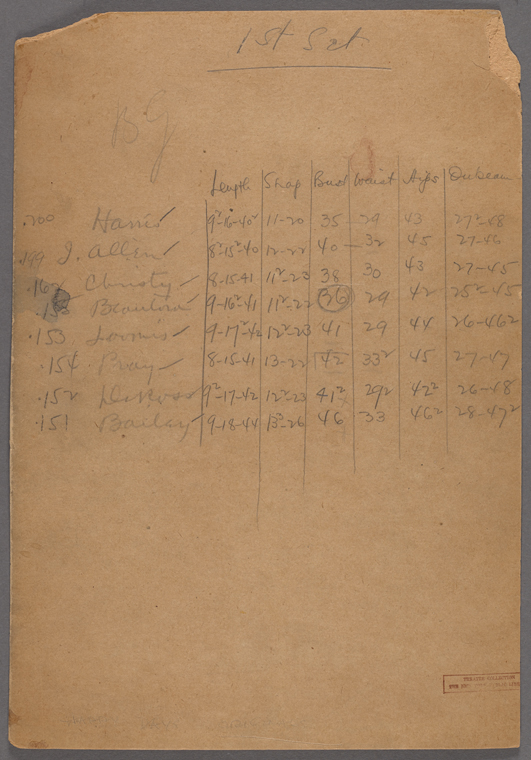 1st Set
BG
Length Snap Bust Waist Hips Outseam
.200 Harris 9²-16-40² 11-20 35 29 43 27²-48
.199 J. Allen 8²-15²-40 12-22 40 - 32 45 27-46
Christy 8-15-41 11²-23 38 30 43 27-45
9-16²-41 11²-22 36 29 42 25²-45
.153 Loomis 9-17²-42 12²-23 41 29 44 26-46²
.154 Bray 8-15-41 13-22 42 33² 45 27-47
.152 DeRoss 9²-17-42 12²-23 41² 29² 42² 26-48
.151 Bailey 9-18-44 13²-26 46 33 46² 28-47²
THEATRE COLLECTION